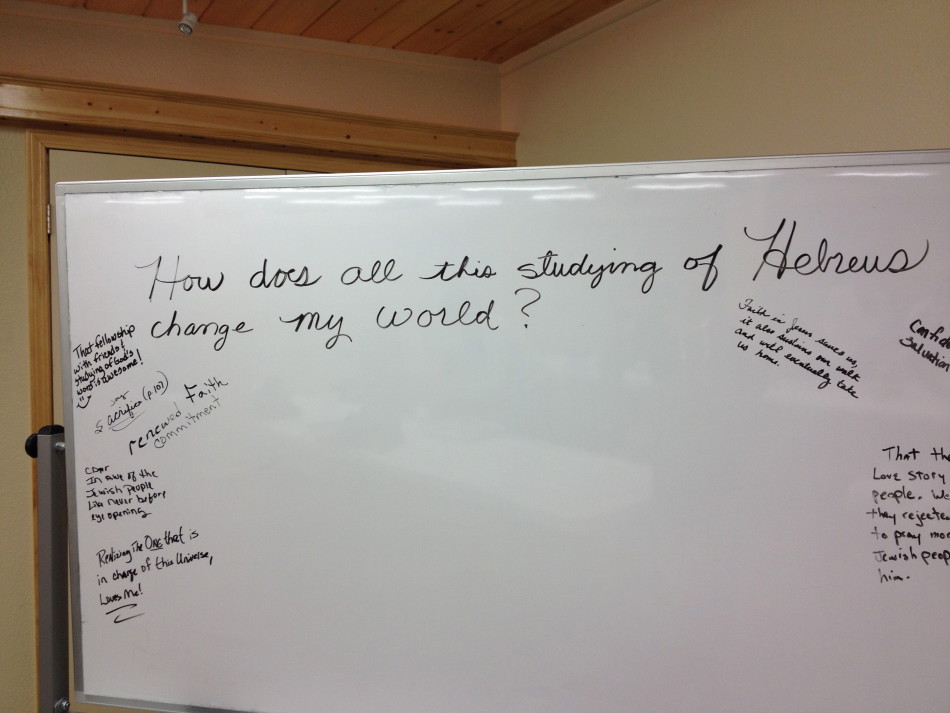 How does all this studying of Hebreus
change my world?
That fellowship
with friends &
studying of God's
word is awesome!
Sacrifice (p.107)
renewed Faith
commitment
In awe of the
Jewish people
Like never before
eye opening
Realizing The One that is
in charge of this Universe,
Loves Me!
Faith in Jesus saves us,
it also sustains our walk
and will eventually take
us home.
Confid
Salvation
That the
Love story
people. We
they rejecte
to pray mor
Jewish peop
him.